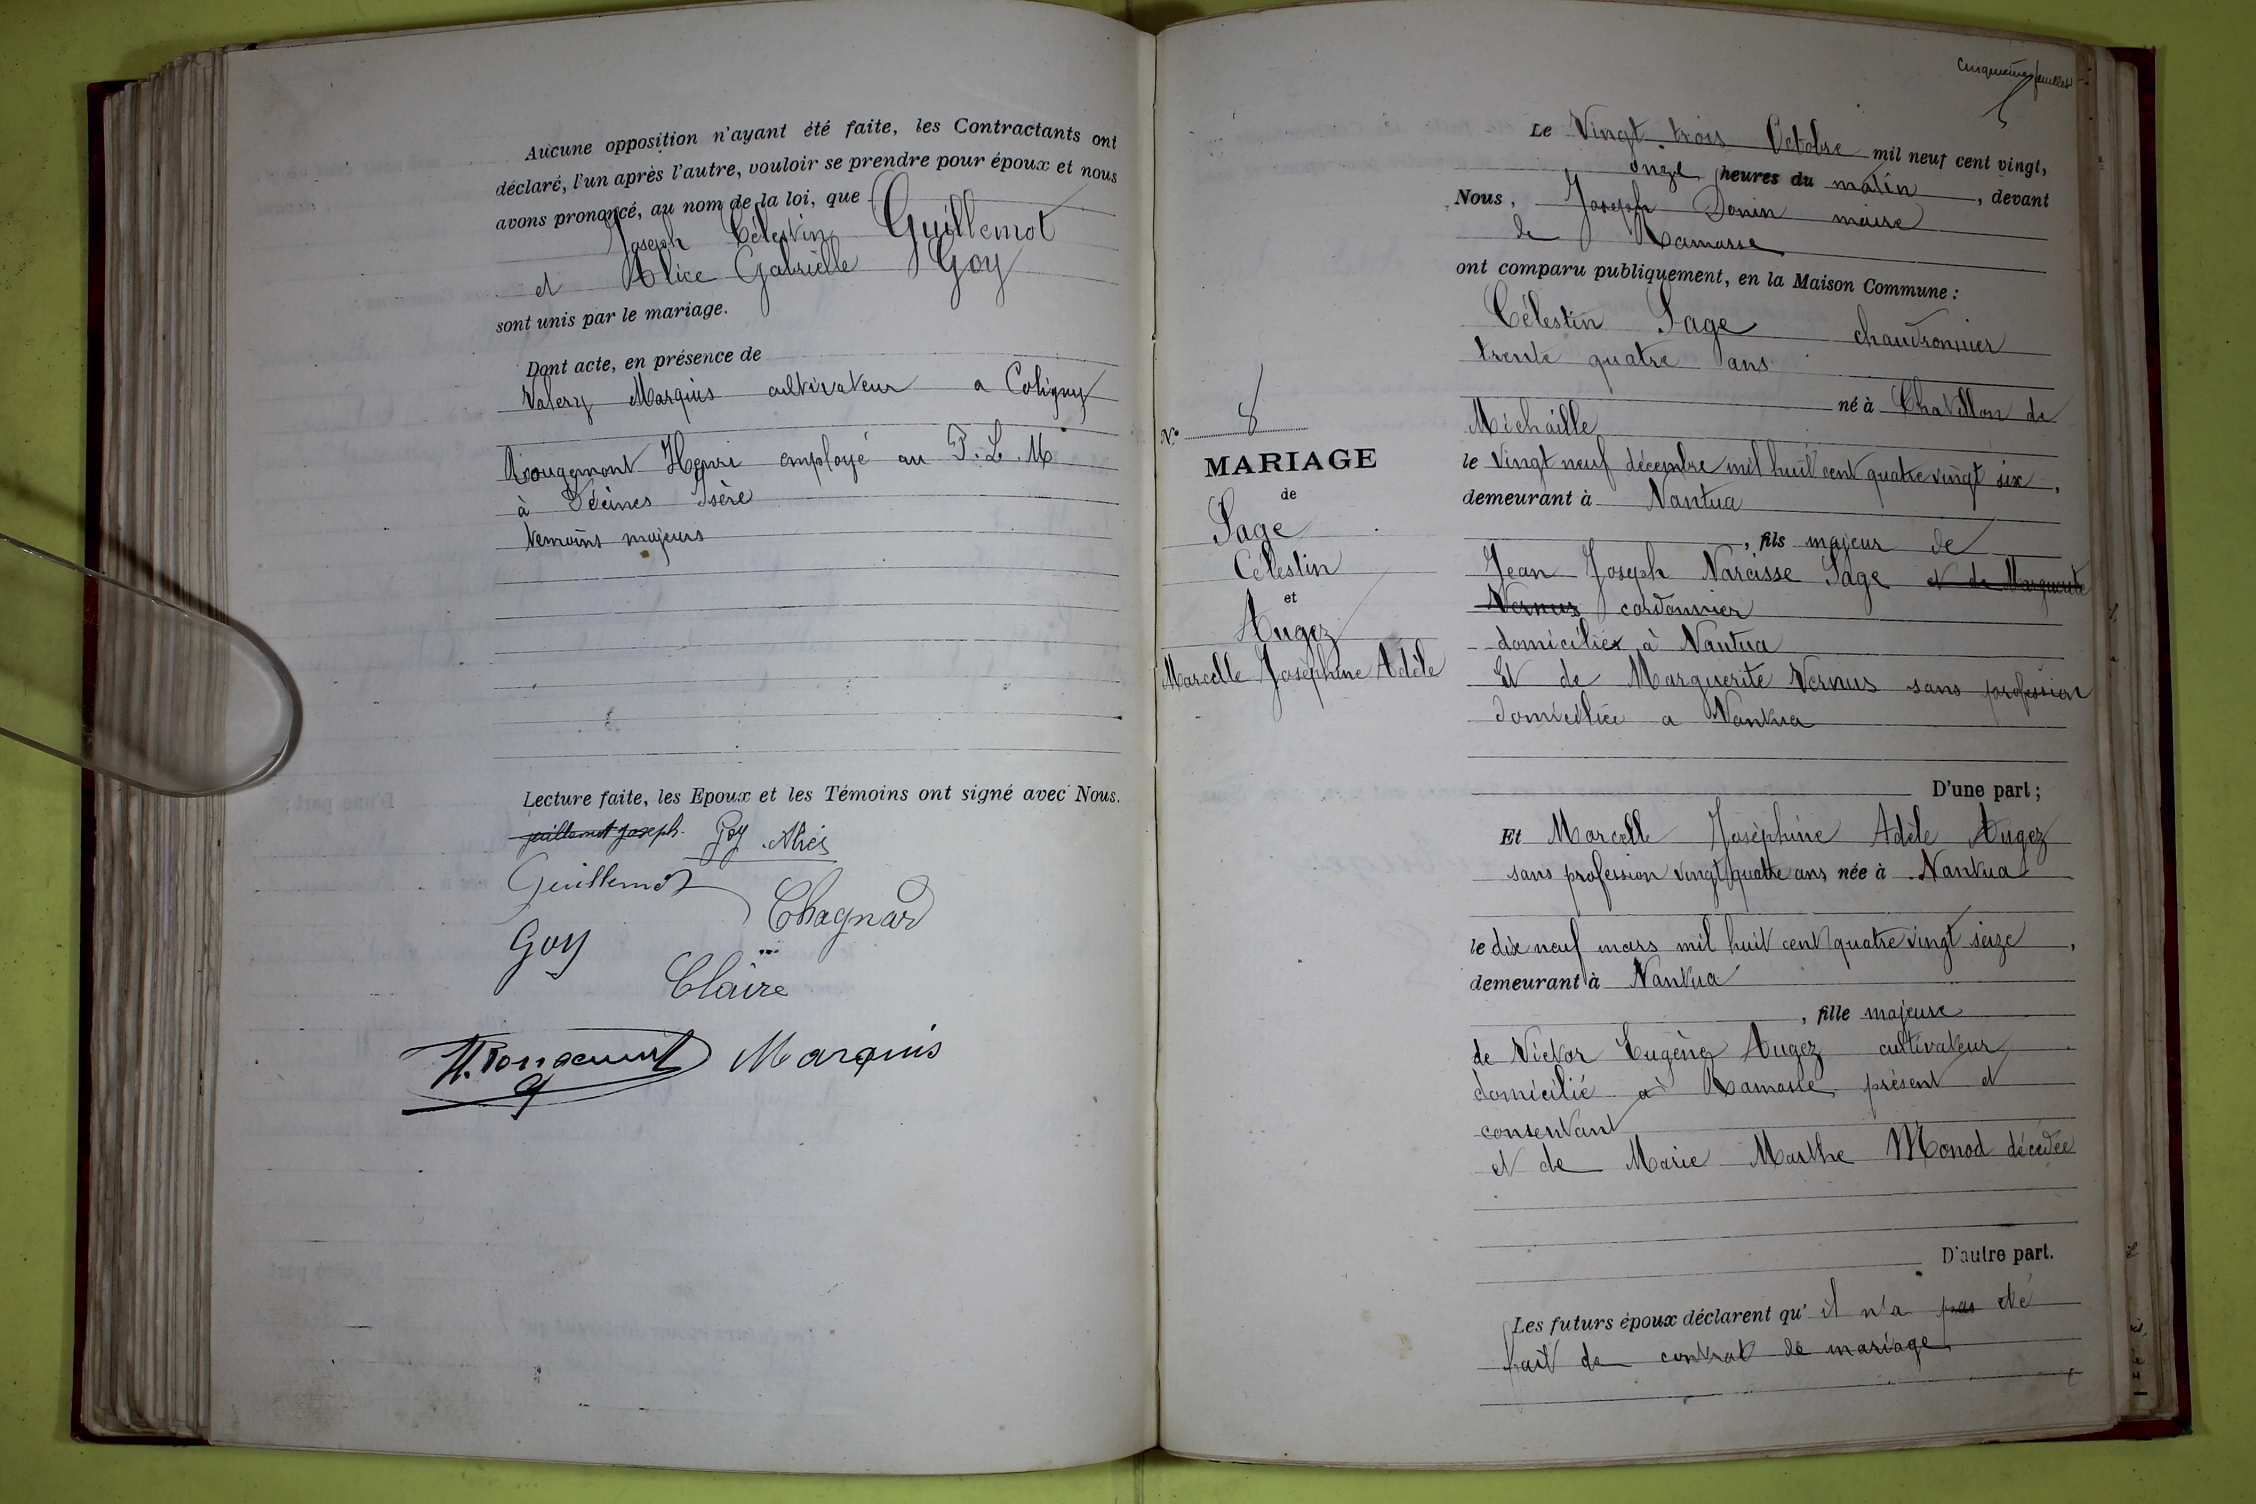 Aucune opposition n'ayant été faite, les Contractants ont
déclaré, l'un après l'autre, vouloir se prendre pour époux et nous
avons prononcé, au nom de la loi, que
Joseph Célestin Guillemot
et Alice Gabrielle Goy
sont unis par le mariage.
Dont acte, en présence de
Valery Marquis cultivateur a Coligny
Rougemont Henri employé au P. L. M
à Décines Isère
temoins majeurs
Lecture faite, les Epoux et les Témoins ont signé avec Nous.
guillemot Joseph. Goy
Guillemot
Chagnard
Goy
Claire
H. Rougemont Marquis
Cinquième feuillet
Le Vingt trois Octobre mil neuf cent vingt,
onze heures du matin, devant
Nous, Joseph Donin maire
de Ramasse
ont comparu publiquement, en la Maison Commune :
Célestin Sage chaudronnier
trente quatre ans
né à Chatillon de
Michaille
le Vingt neuf décembre mil huit cent quatre vingt six,
demeurant à Nantua
, fils majeur de
Jean Joseph Narcisse Sage et de Marguerite
Vernus cordonnier
domicilié à Nantua
Et de Marguerite Vernus sans profession
domiciliée a Nantua
D'une part ;
N° 8
MARIAGE
de
Sage
Célestin
et
Augez
Marcelle Joséphine Adèle
Et Marcelle Joséphine Adèle Augez
sans profession vingt quatre ans née à Nantua
le dix neuf mars mil huit cent quatre vingt seize,
demeurant à Nantua
, fille majeure
de Victor Eugène Augez cultivateur
domicilié à Ramasse présent et
consentant
et de Marie Marthe Monod décédée
D'autre part.
Les futurs époux déclarent qu'il n'a pas été
fait de contrat de mariage